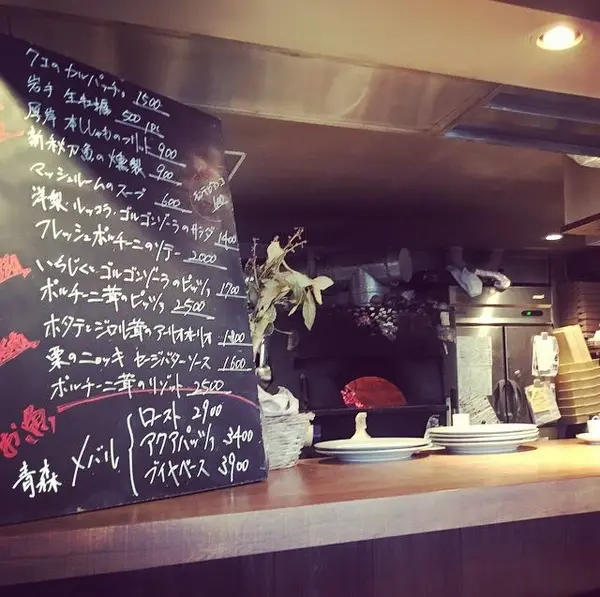 クエのカルパッチョ 1500
岩手 生牡蠣 500 1pc
厚岸 本ししゃものフリット 900
新秋刀魚の燻製 900
マッシュルームのスープ 600
洋梨・ルッコラ・ゴルゴンゾーラのサラダ 1400
フレッシュポルチーニのソテー 2000
いちじくとゴルゴンゾーラのピッツァ 1700
ポルチーニ茸のピッツァ 2500
ホタテとジロル茸のアーリオオーリオ
栗のニョッキ セージバターソース 1600
ポルチーニ茸のリゾット 2500
お魚
青森 メバル
ロースト 2900
アクアパッツァ 3400
ブイヤベース 3900